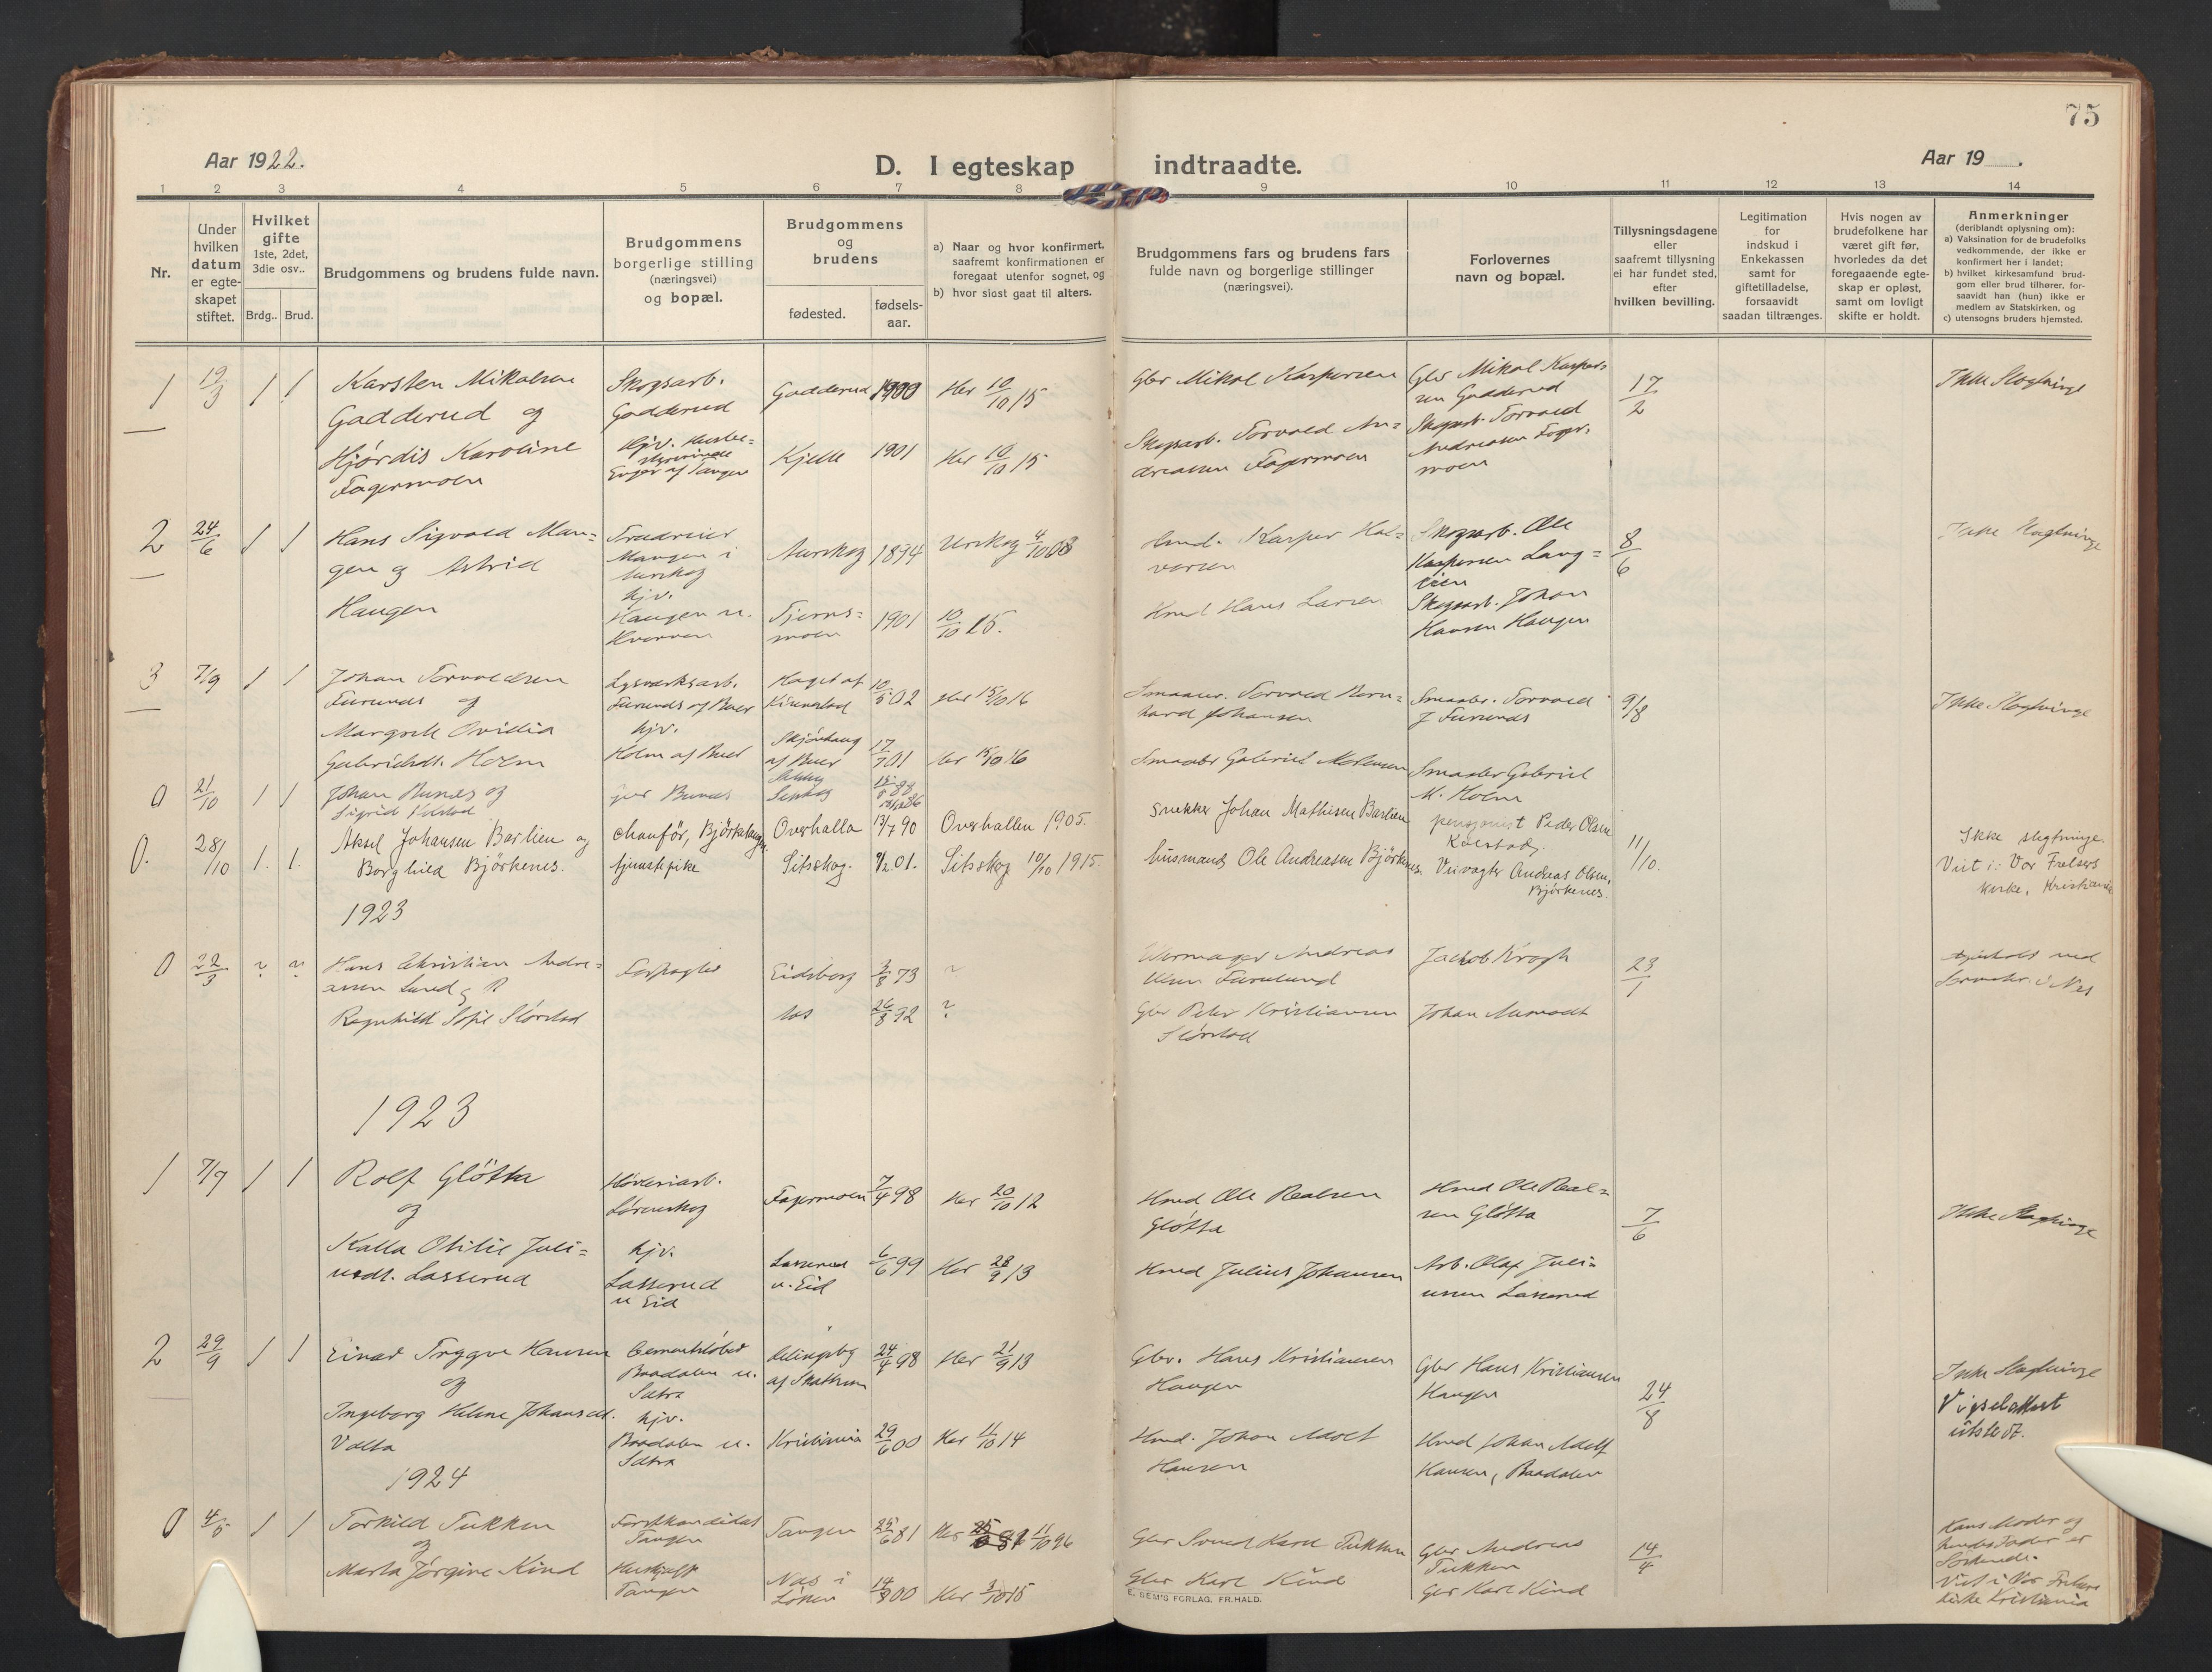 75
Aar 1922.
D. I egteskap indtraadte.
Aar 19 .
1 2 3 4 5 6 7 8 9 10 11 12 13 14
Nr.
Under hvilken datum er egte-skapet stiftet.
Hvilket gifte
1ste, 2det, 3die osv..
Brdg.. Brud.
Brudgommens og brudens fulde navn.
Brudgommens borgerlige stilling
(næringsvei)
og bopæl.
Brudgommens og brudens
fødested.
fødsels-aar.
a) Naar og hvor konfirmert, saafremt konfirmationen er foregaat utenfor sognet, og
b) hvor sidst gaat til alters.
Brudgommens fars og brudens fars
fulde navn og borgerlige stillinger
(næringsvei).
Forlovernes
navn og bopæl.
Tillysningsdagene
eller
saafremt tillysning
ei har fundet sted,
efter
hvilken bevilling.
Legitimation
for
indskud i
Enkekassen
samt for
giftetilladelse,
forsaavidt
saadan tiltrænges.
Hvis nogen av
brudefolkene har
været gift før,
hvorledes da det
foregaaende egte-
skap er opløst,
samt om lovligt
skifte er holdt.
Anmerkninger
(deriblandt oplysning om):
a) Vaksination for de brudefolks
vedkommende, der ikke er
konfirmert her i landet;
b) hvilket kirkesamfund brud-
gom eller brud tilhører, for-
saavidt han (hun) ikke er
medlem av Statskirken, og
c) utensogns bruders hjemsted.
1 19/3 1 1 Karsten Mikalsen Skogsarb. Gadderud 1900 Her 10/10 15 Gbr Mikal Kaspersen Gbr Mikal Kasper- 17/2 Ikke Slegtninge
Gadderud og Gadderud sen Gadderud
Hjørdis Karoline Kjelle 1901 Her 10/10 15 Skogsarb. Torvald An- Skogsarb. Torvald
Fagermoen dreassen Fagermoen Andreassen Fager-
moen
2 24/6 1 1 Hans Sigvald Man- Mangen i Aurskog 1894 Urskog 4/10 08 Kasper Hal- Skogsarb. Ole 8/6 Ikke Slegtninge
gen og Astrid Aurskog vorsen Kaspersen Lang-
Haugen hjv. Haugen u. Tjerns- 1901 10/10 15. Hans Larsen Skogsarb. Johan
moen Hansen Haugen
3 7/9 1 1 Johan Torvaldsen Lysverksarb. 10/5 02 Her 15/10 16 Torvald Bern- Torvald 9/8 Ikke Slegtninge
Furunes og Furunes af Buer hard Johansen J Furunes
Margrete Ovidia hjv. Skjønhaug 17/7 01 Her 15/10 16 Gabriel
Gabrielsdt. Holm Holm af Buer af Buer M. Holm
0 21/10 1 1 Johan Bunes og Bunes Setskog 88
Sigrid 86
0. 28/10 1. 1. Aksel Johansen Barlien og Chauför, Bjørkelangen. Overhalla 13/7 90 Overhallen 1905. snekker Johan Mathisen Barlien pensjonist Peder Olsen 11/10. Ikke slegtninge.
Borghild Bjørkenes. tjenestepike Sitskog. 01. Sitskog 10/10 1915. husmand Ole Andreasen Bjørkenes. Kolstad. Veivogter Andreas Olsen, Bjørkenes. Viet i: Vor Frelsers
kirke, Kristiania
1923
0 22/3 ? ? Hans Christian Andre- Eidsberg 3/8 73 ? Andreas Jacob Krogh 23/1
assen Lund og Olsen Furulund i Nes
Ragnhild Sofie Størstad 26/8 92 ? Gbr Peter Kristiansen Johan Aamodt
Størstad
1923
1 7/9 1 1 Rolf Gløtta Høveriarb. Fagermoen 7/4 98 Her 20/10 12 Hmd Ole Realsen Hmd Ole Real- 7/6 Ikke Slegtninge
og Lørenskog Gløtta sen Gløtta
Kalla Otilie Juli- hjv. Lasserud 6/6 99 Her 28/9 13 Hmd Julius Johansen Arb. Olaf Juli-
usdt. Lasserud Lasserud u. Eid ussen Lasserud
u Eid
2 29/9 1 1 Einar Trygve Hansen Cementstøber 24/4 98 Her 21/9 13 Gbr. Hans Kristiansen Gbr Hans Kristiansen 24/8 Ikke Slegtninge
og Baadalen u. Haugen Haugen Vigselattest
Sætra utstedt.
Ingeborg Helene Johansdt. hjv. Kristiania 29/6 00 Her 11/10 14 Hmd. Johan Adolf Hmd Johan Adolf
Valla Baadalen u. Hansen Hansen, Baadalen
Sætra
1924
0 4/5 1 1 Torkild Tukken Forstkandidat Tangen 25/6 81 Her 11/10 96 Gbr Karl Tukken Gbr Andreas 14/4 Hans Moder og
og Tangen Tukken hendes Fader er
Marta Jørgine Kind Tangen Nes i 00 Her 3/10 15 Gbr Karl Kind Gbr Karl Kind Søskende.
Løken Viet i Vor Frelsers
kirke Kristiania
E. SEM'S FORLAG, FR.HALD.